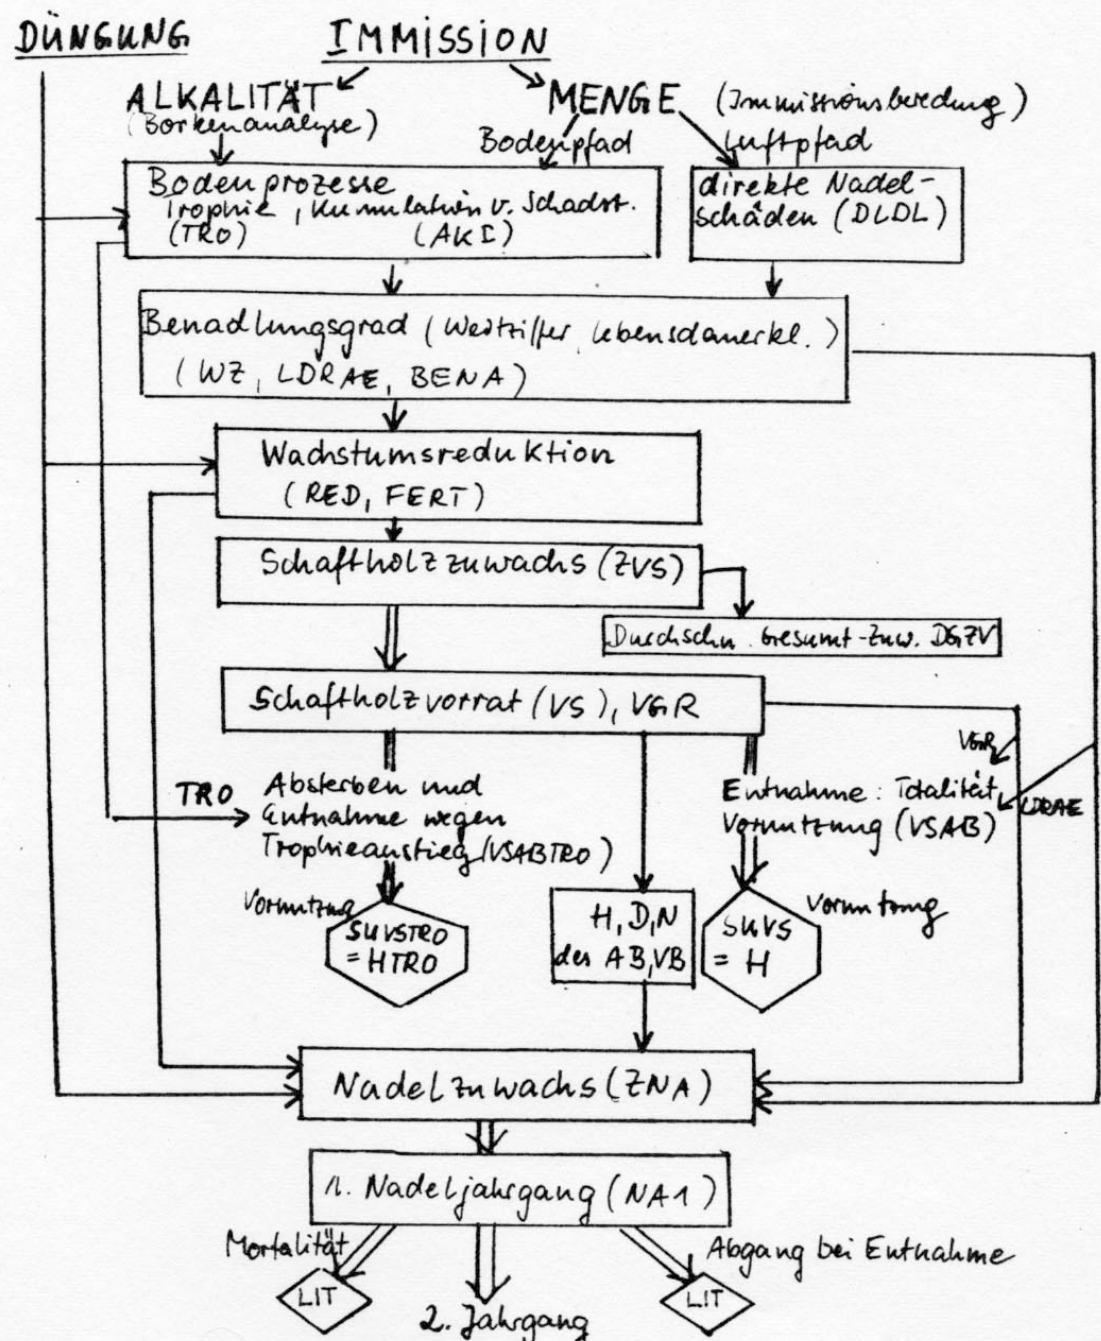 DÜNGUNG
IMMISSION
ALKALITÄT
(Borkenanalyse)
MENGE
(Immissionsberedung)
Bodenpfad
Luftpfad
Bodenprozesse
Trophie, Kumulation v. Schadst.
(TRO)
(AKI)
direkte Nadel-
schäden (DLDL)
Benadlungsgrad (Wertziffer, Lebensdauerkl.)
(WZ, LDRAE, BENA)
Wachstumsreduktion
(RED, FERT)
Schaftholzzuwachs (ZVS)
Durchschn. Gesamt-Zuw. DGZV
Schaftholzvorrat (VS), VGR
VGR
TRO
Absterben und
Entnahme wegen
Trophieanstieg (VSABTRO)
Entnahme: Totalität,
Vornutzung (VSAB)
LDRAE
Vornutzung
SUVSTRO
= HTRO
H, D, N
des AB, VB
SUVS
= H
Vornutzung
Nadelzuwachs (ZNA)
1. Nadeljahrgang (NA1)
Mortalität
Abgang bei Entnahme
LIT
LIT
2. Jahrgang